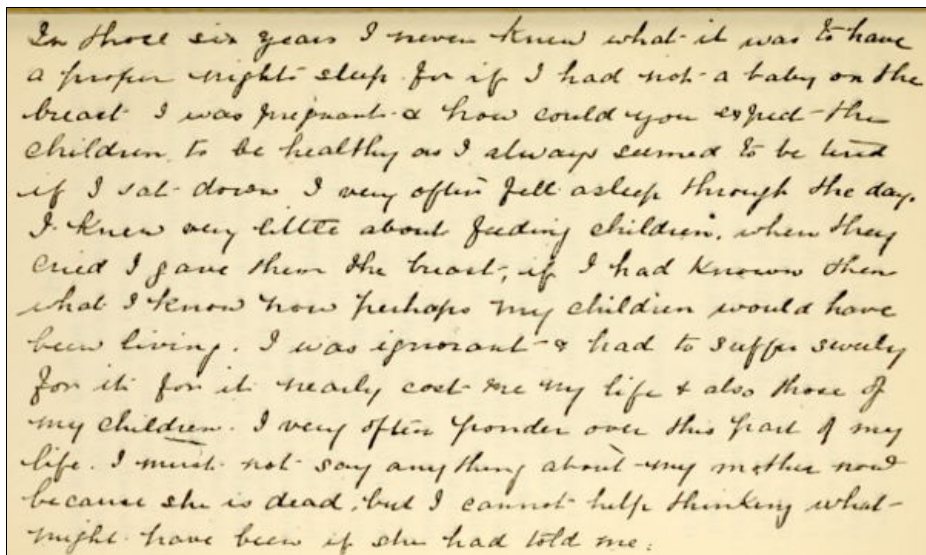 In those six years I never knew what it was to have
a proper nights sleep for if I had not a baby on the
breast I was pregnant & how could you expect the
children to be healthy as I always seemed to be tired
if I sat down I very often fell asleep through the day.
I knew very little about feeding children, when they
cried I gave them the breast, if I had known then
what I know now perhaps my children would have
been living. I was ignorant & had to suffer severely
for it for it nearly cost me my life & also those of
my children. I very often ponder over this part of my
life. I must not say anything about my mother now
because she is dead, but I cannot help thinking what
might have been if she had told me.